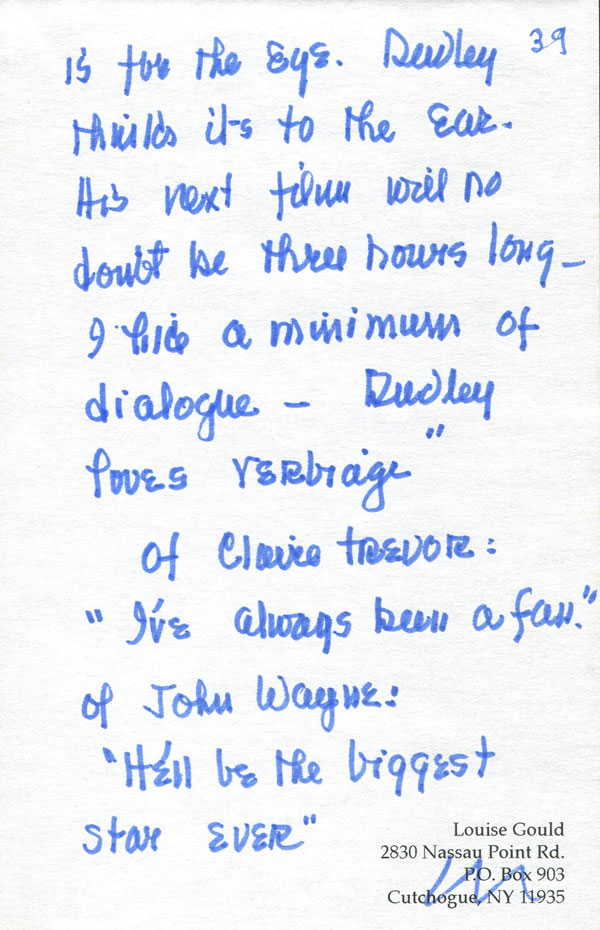 39
is for the eye. Dudley
thinks it's to the ear.
His next film will no
doubt be three hours long –
I like a minimum of
dialogue – Dudley
loves verbiage"
of Claire Trevor:
"I've always been a fan."
of John Wayne:
"He'll be the biggest
star ever"
Louise Gould
2830 Nassau Point Rd.
P.O. Box 903
Cutchogue, NY 11935